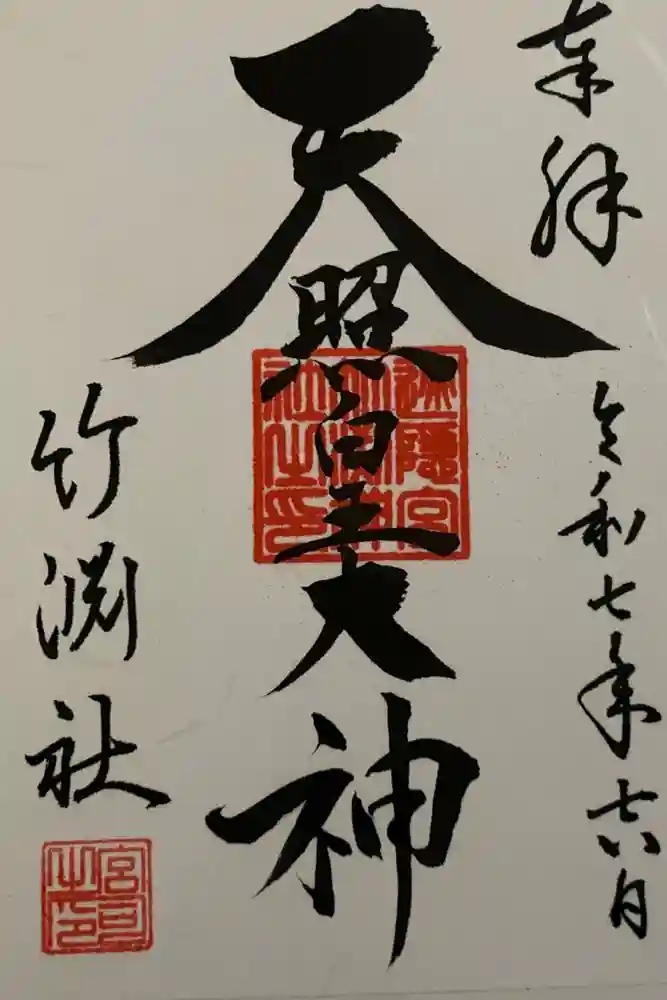 奉拝
令和七年六月
天照皇大神
竹渕社
宮司
之印